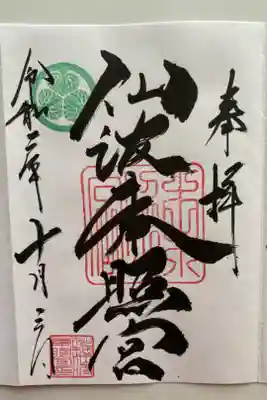 奉拝
仙波東照宮
令和二年十月三日